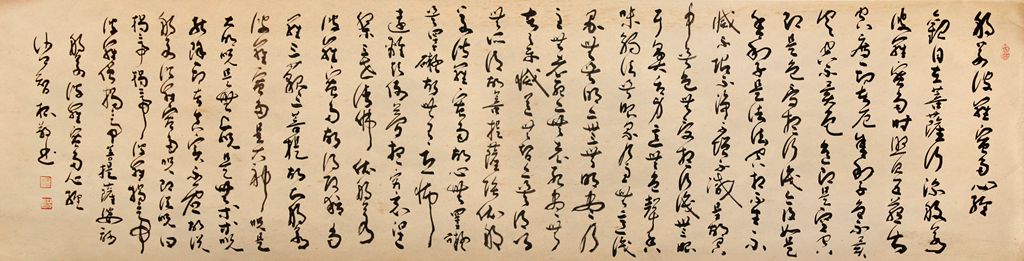 般若波羅蜜多心經
觀自在菩薩行深般若
波羅蜜多時照見五蘊皆
空度一切苦厄舍利子色不異
空空不異色色即是空空
即是色受想行識亦復如是
舍利子是諸法空相不生不
滅不垢不淨不增不減是故空
中無色無受想行識無眼
耳鼻舌身意無色聲香
味觸法無眼界乃至無意識
界無無明亦無無明盡乃
至無老死亦無老死盡無
苦集滅道無智亦無得以
無所得故菩提薩埵依般
若波羅蜜多故心無罣礙
無罣礙故無有恐怖
遠離顛倒夢想究竟涅
槃三世諸佛依般若
波羅蜜多故得阿耨多
羅三藐三菩提故知般若
波羅蜜多是大神咒是
大明咒是無上咒是無等等咒
能除一切苦真實不虛故說
般若波羅蜜多咒即說咒曰
揭帝揭帝波羅揭帝
波羅僧揭帝菩提薩婆訶
般若波羅蜜多心經
沙門智